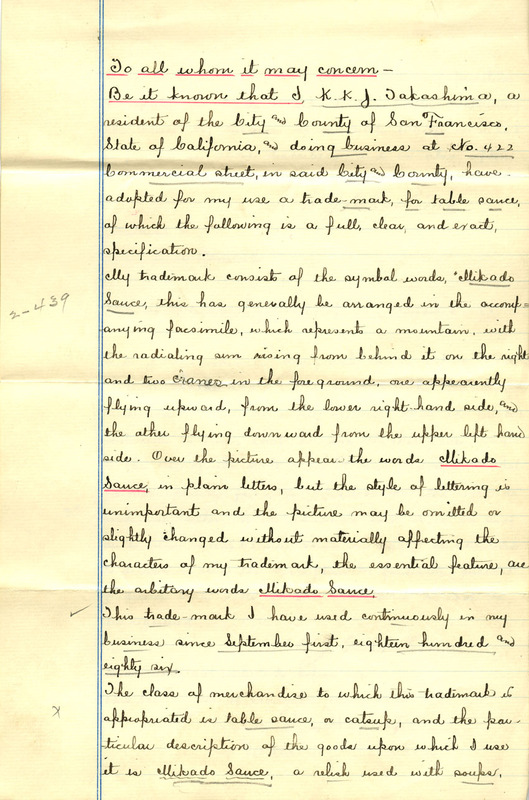 To all whom it may concern –
Be it known that I, K. K. J. Takashima, a
resident of the City and County of San Francisco,
State of California, and doing business at No. 422
Commercial street, in said City and County, have
adopted for my use a trade-mark, for table sauce,
of which the following is a full, clear, and exact,
specification.
My trademark consists of the symbol words, "Mikado
Sauce, this has generally be arranged in the accomp=
anying facsimile, which represents a mountain, with
2-439
the radiating sun rising from behind it on the right
and two cranes in the foreground, one appearently
flying upward, from the lower right-hand side, and
the other flying downward from the upper left hand
side. Over the picture appear the words Mikado
Sauce, in plain letters, but the style of lettering is
unimportant and the picture may be omitted or
slightly changed without materially affecting the
characters of my trademark, the essential feature, are
the arbitary words Mikado Sauce.
✓ This trade-mark I have used continuously in my
business since September first, eighteen hundred and
eighty six.
The class of merchandise to which this trademark is
x appropriated in table sauce, or catsup, and the par-
ticular description of the goods upon which I use
it is Mikado Sauce, a relish used with soups,